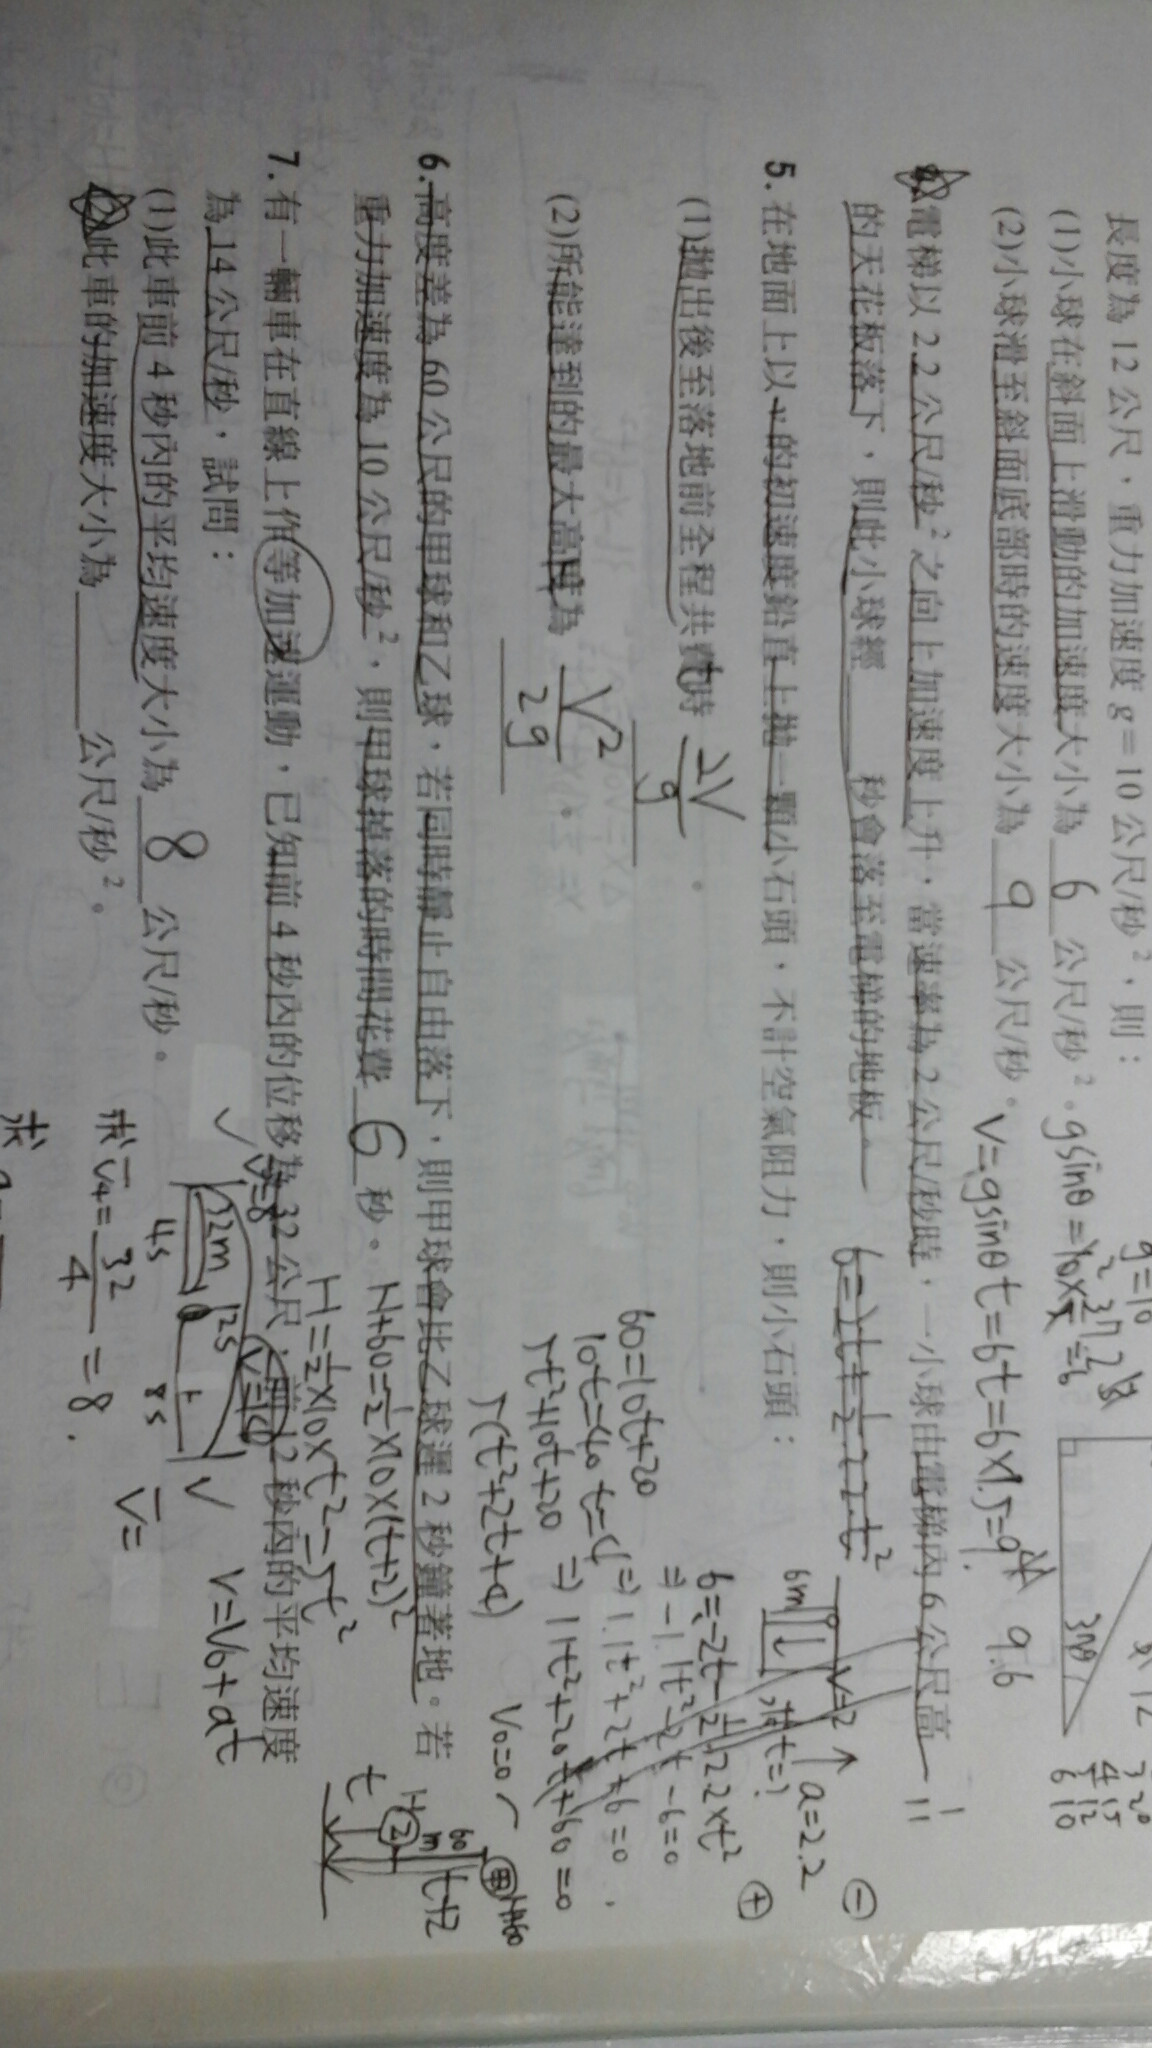 長度為 12 公尺，重力加速度 g＝10 公尺/秒²，則：
(1)小球在斜面上滑動的加速度大小為 6 公尺/秒²。
(2)小球滑至斜面底部時的速度大小為 9 公尺/秒。
V=gsinθt=6t=6×1.5=9
9.6
電梯以 2.2 公尺/秒² 之向上加速度上升，當速率為 2 公尺/秒時，一小球由電梯內 6 公尺高
的天花板落下，則此小球經 秒會落至電梯的地板。
V=2 a=2.2
6m
5. 在地面上以 v 的初速度鉛直上拋一顆小石頭，不計空氣阻力，則小石頭：
6=-2t-½×2.2×t²
⇒-1.1t²-2t-6=0
⇒1.1t²+2t+6=0
⇒11t²+20t+60=0
(1)拋出後至落地前全程共費時 2V/g 。
60=10t+20
10t=40 t=4
5t²+10t+20
5(t²+2t+4)
(2)所能達到的最大高度為 V²/2g
V₀=0
6. 高度差為 60 公尺的甲球和乙球，若同時靜止自由落下，則甲球會比乙球遲 2 秒鐘著地。若
重力加速度為 10 公尺/秒²，則甲球掉落的時間花費 6 秒。
H+60=½×10×(t+2)²
H=½×10×t²=5t²
60
m
t+2
t
7. 有一輛車在直線上作等加速運動，已知前 4 秒內的位移為 32 公尺，前 12 秒內的平均速度
為 14 公尺/秒，試問：
(1)此車前 4 秒內的平均速度大小為 8 公尺/秒。
此車的加速度大小為 公尺/秒²。
V=V₀+at
32m
4s
12s
8s
V
求V̄₄=32/4=8.
V̄=
求